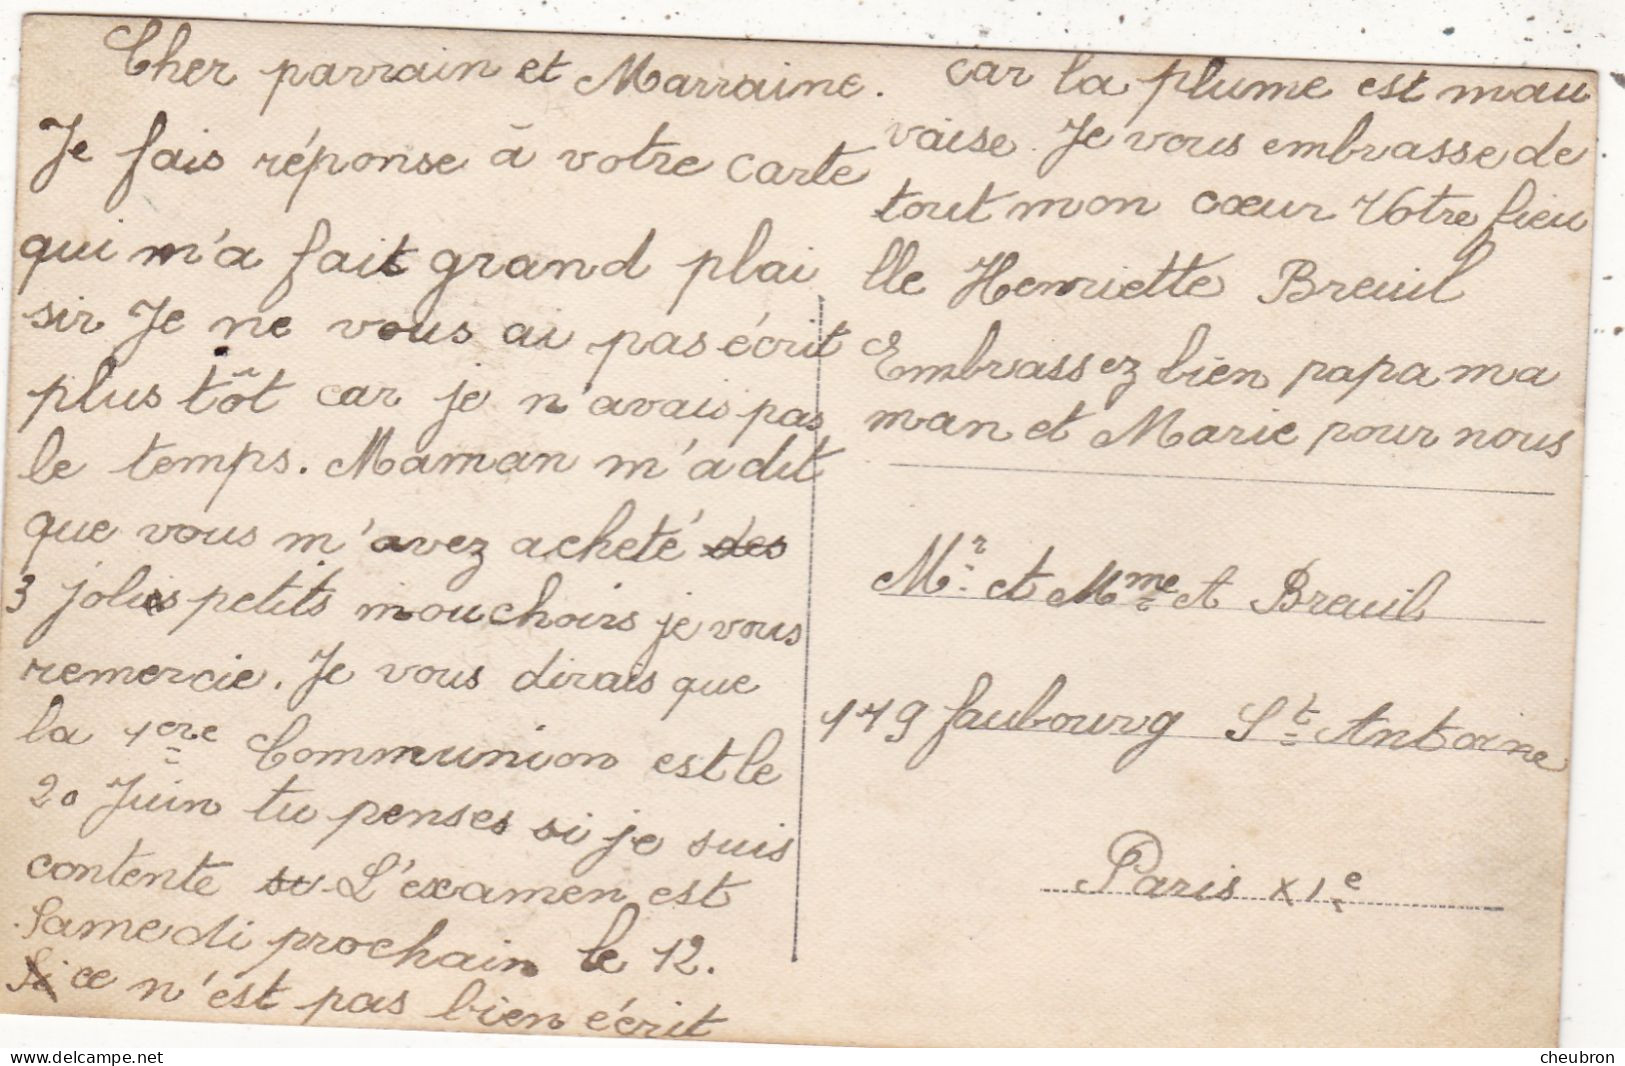 Cher parrain et Marraine.
Je fais réponse à votre carte
qui m'a fait grand plai
sir Je ne vous ai pas écrit
plus tôt car je n'avais pas
le temps. Maman m'a dit
que vous m'avez acheté des
3 jolies petits mouchoirs je vous
remercie. Je vous dirais que
la 1ere Communion est le
20 Juin tu penses si je suis
contente su L'examen est
Samedi prochain le 12.
Si ce n'est pas bien écrit
car la plume est mau
vaise. Je vous embrasse de
tout mon cœur Votre fieu
lle Henriette Breuil
Embrassez bien papa ma
man et Marie pour nous
Mr. et Mme A Breuil
179 faubourg St Antoine
Paris XIe
cheubron